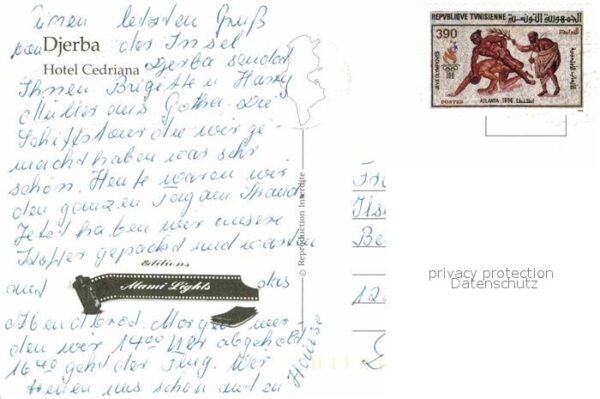 Einen letzten Gruß
von der Insel
Djerba sendet
Ihnen Brigitte u Harry
Müller aus Gotha. Die
Schiffstour die wir ge-
macht haben war sehr
schön. Heute waren wir
den ganzen Tag am Strand
Jetzt haben wir unsere
Koffer gepackt und warten
auf das
Abendbrod. Morgen wer-
den wir 14⁰⁰ Uhr abgeholt
16⁴⁰ geht der Flug. Wir
freuen uns schon auf zu
Hause
Djerba
Hotel Cedriana
Editions
Mami Lights
© Reproduction Interdite
REPVBLIQVE TVNISIENNE
الجمهورية التونسية
390
POSTES
ATLANTA 1996
Fr
Ilse
Be
12
privacy protection
Datenschutz